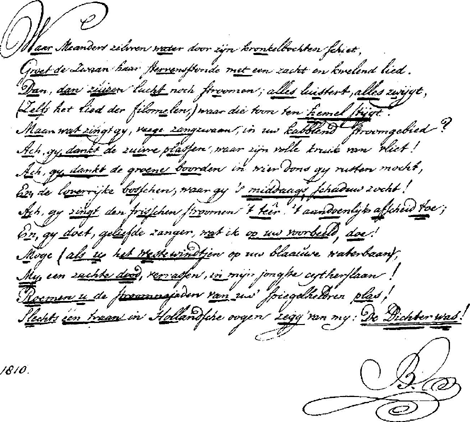 Waar Meanders zilvren water door zijn kronkelbochten schiet,
Groet de Zwaan haar stervensstonde met een zacht en kwelend lied.
Dan, dan zwicht lucht noch stroomen; alles luistert, alles zwijgt,
(Zelfs het lied der filomelen,) waar die toon ten hemel stijgt.
Maar wat zingt gy, veege zangzwaan, in uw kabblend stroomgebied?
Ach, gy dankt de zuivre plassen, waar zijn volle kruik van vliet!
Ach, gy dankt de groene boorden in wier dons gy rusten mocht,
En de loverrijke bosschen, waar gy 's middaags schaduw zocht!
Ach, gy zingt den frisschen stroomen 't teêr 't aandoenlijk afscheid toe;
En, gy doet, geliefde zanger, wat ik op uw voorbeeld, doe!
Moge (als u het westewindtjen op uw blaauwe waterbaan,)
My een zachte dood verrassen, in mijn jongste cytherslaan!
Roemen u de stroomnajaden van uw' spiegelhelren plas!
Slechts één traan in Hollandsche oogen zegg' van my: De Dichter was!
1810.
B.